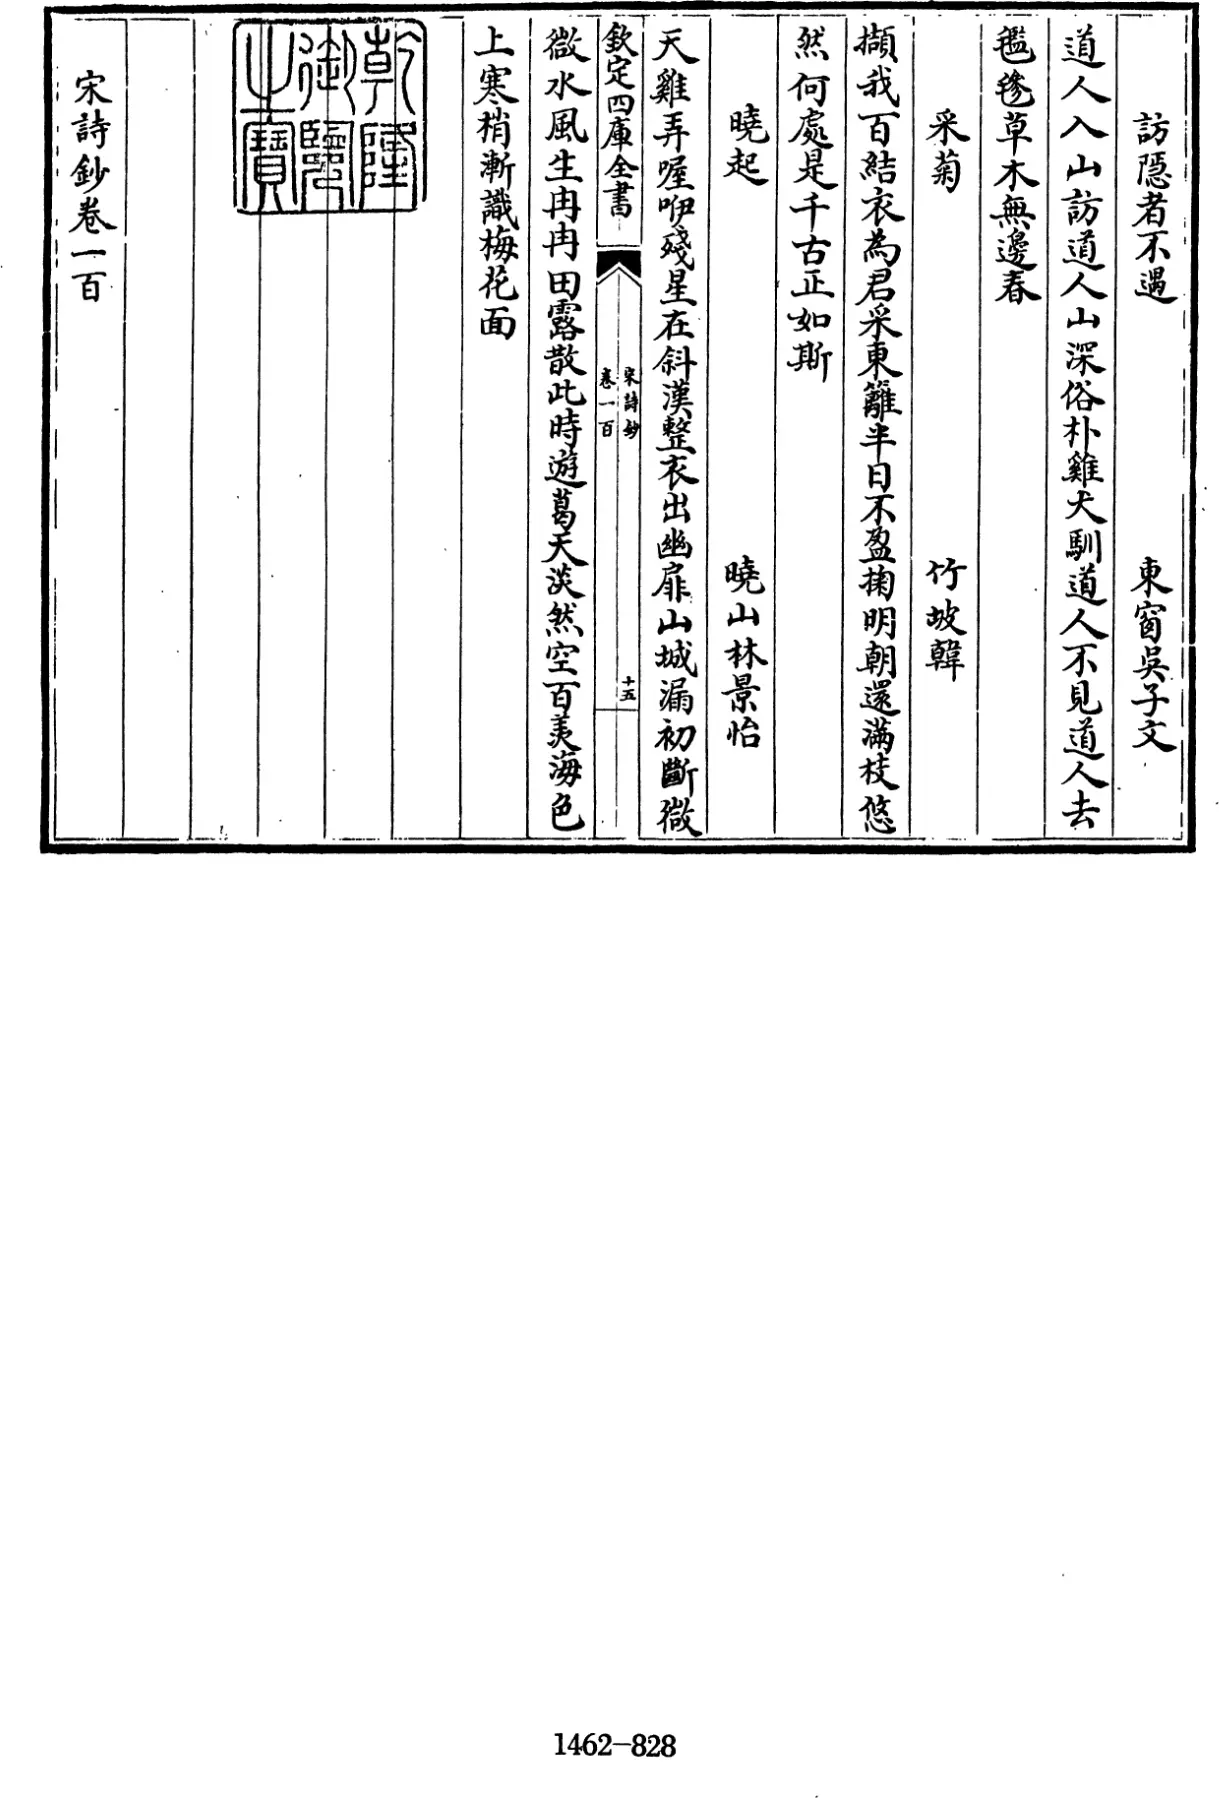 訪隱者不遇　東窗吳子文
道人入山訪道人山深俗朴雞犬馴道人不見道人去
㲯毵草木無邊春
采菊　竹坡韓
擷我百結衣為君采東籬半日不盈掬明朝還滿枝悠
然何處是千古正如斯
曉起　曉山林景怡
天雞弄喔咿殘星在斜漢整衣出幽扉山城漏初斷微
欽定四庫全書
宋詩鈔
卷一百
十五
微水風生冉冉田露散此時遊葛天淡然空百羡海色
上寒梢漸識梅花面
乾隆御覽之寶
宋詩鈔卷一百
1462-828